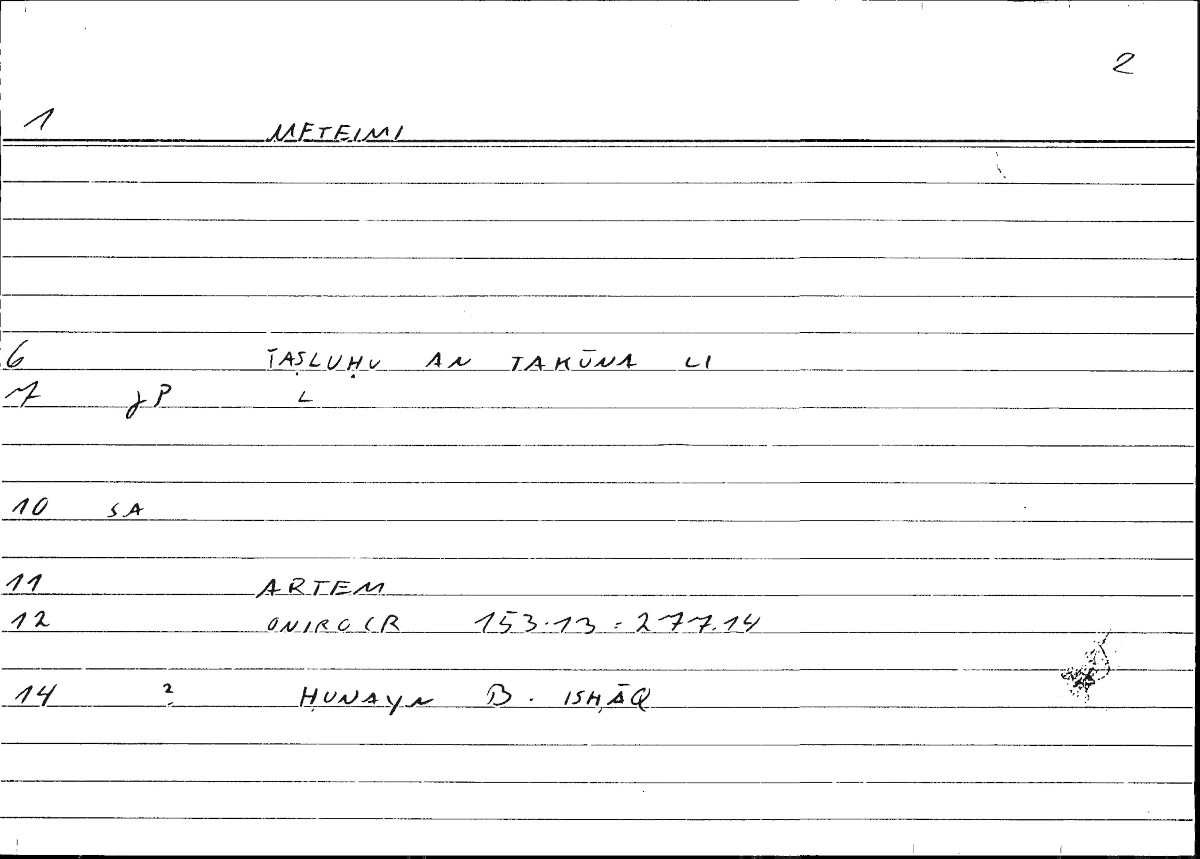 2
1 METEIMI
6 TAṢLUḤU AN TAKŪNA LI
7 JP L
10 SA
11 ARTEM
12 ONIROCR 153.13 = 277.14
14 2 ḤUNAYN B. ISḤĀQ